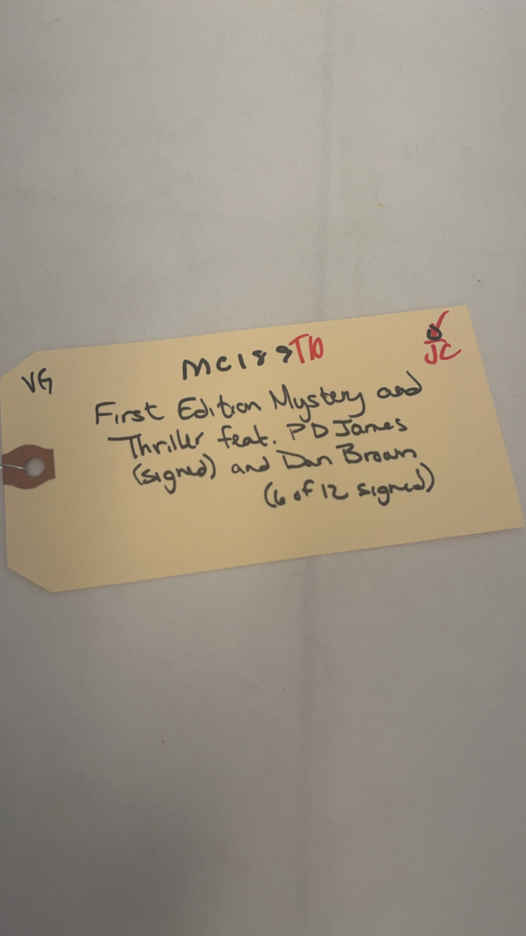 VG
MC189 T10
JC
First Edition Mystery and
Thriller feat. PD James
(signed) and Dan Brown
(6 of 12 signed)